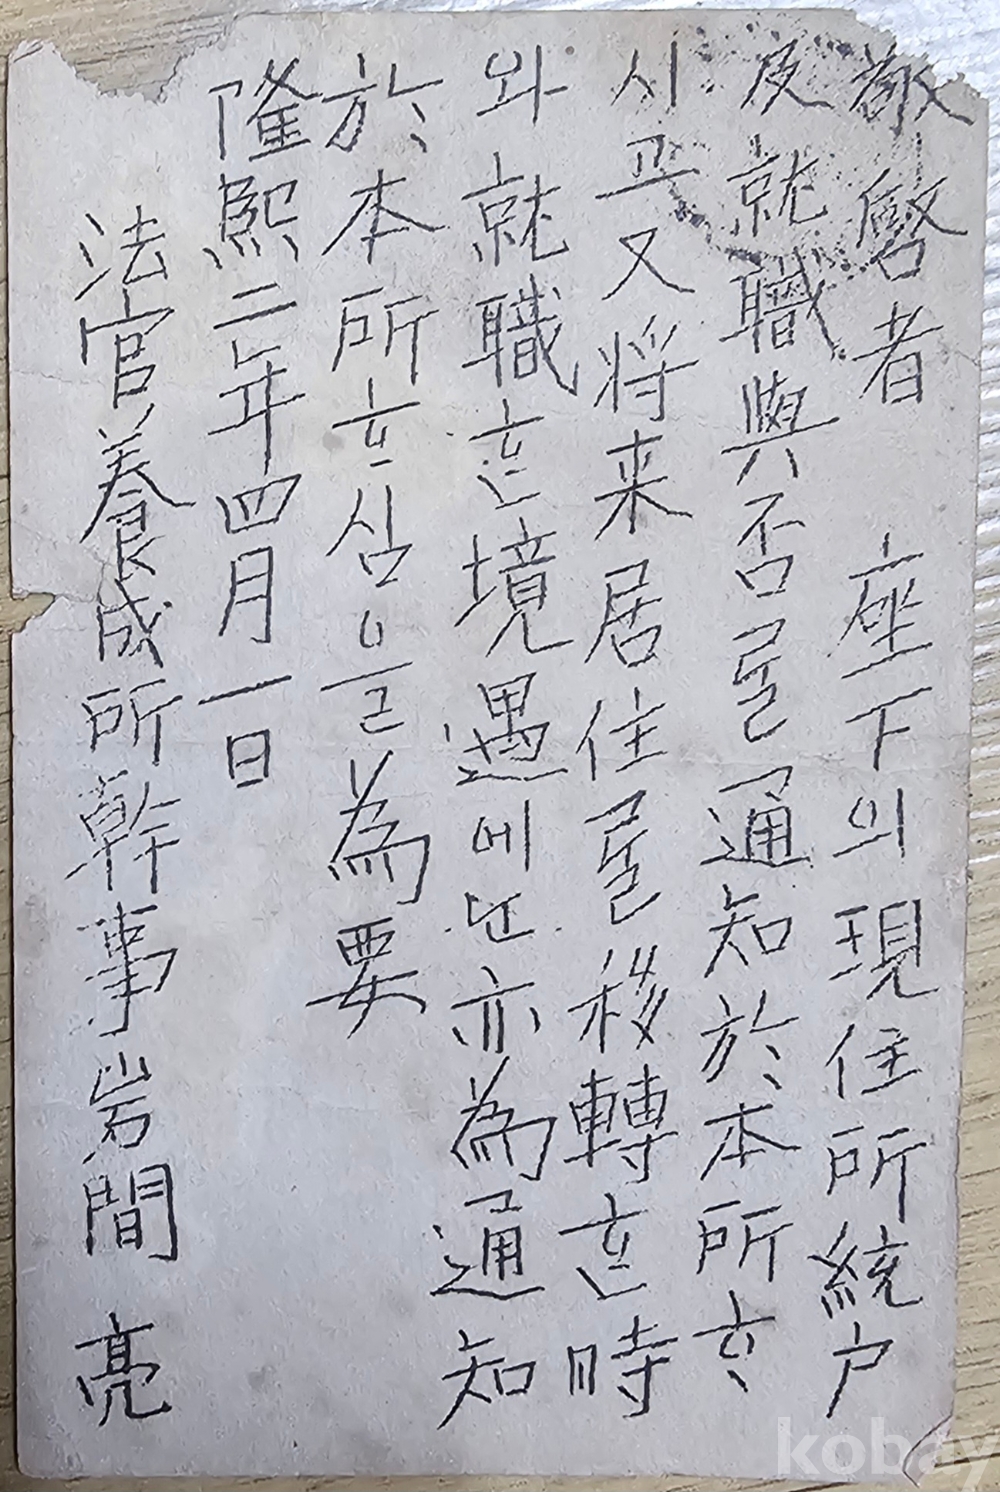 敬啓者 座下의現住所統戶
及就職與否를通知於本所ᄒᆞ
시고又将来居住를移轉ᄒᆞᆫ時
와就職ᄒᆞᆫ境遇에ᄂᆞᆫ亦為通知
於本所ᄒᆞ심을為要
隆熙二年四月一日
法官養成所幹事岩間 亮
kobay